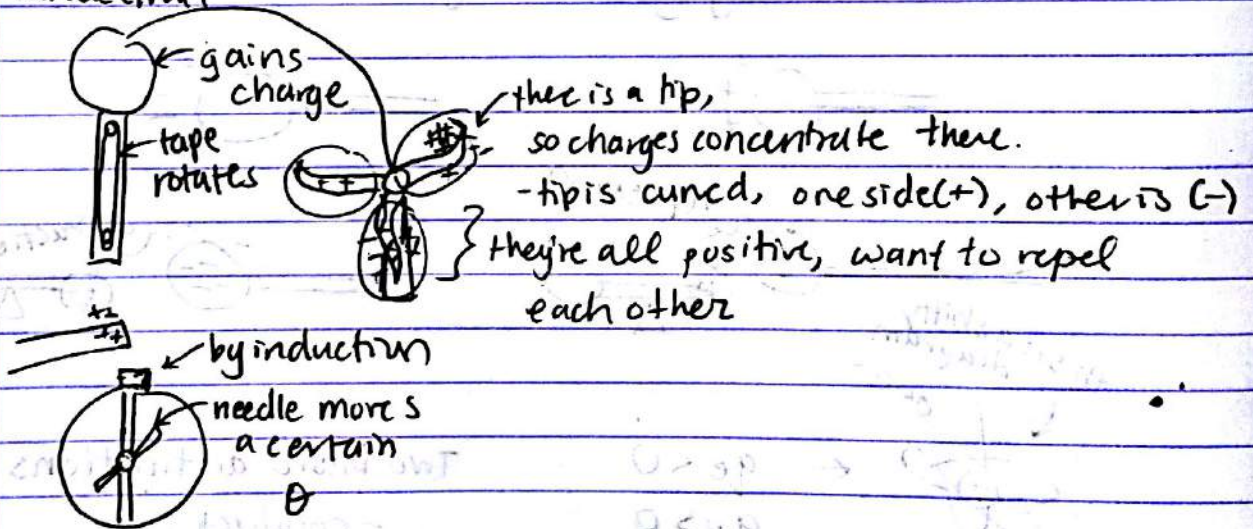 gains
charge
tape
rotates
thee is a tip,
so charges concentrate there.
- tip is curved, one side (+), other is (-)
they're all positive, want to repel
each other
by induction
needle moves
a certain
θ